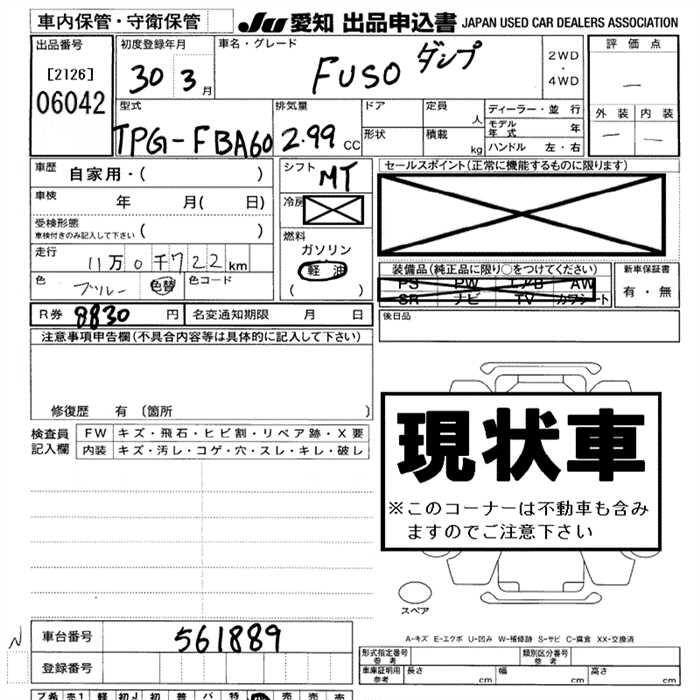 車内保管・守衛保管 JU 愛知 出品申込書 JAPAN USED CAR DEALERS ASSOCIATION
出品番号 初度登録年月 車名・グレード 評価点
[2126] 30 3月 FUSO ダンプ 2WD・4WD —
06042 型式 排気量 ドア 定員 人 ディーラー・並行 外装 内装
TPG-FBA60 2.99 CC 形状 積載 kg モデル年式 年 — —
ハンドル 左・右
車歴 自家用・( ) シフト MT セールスポイント(正常に機能するものに限ります)
車検 年 月( 日) 冷房
受検形態 車検付きのみ記入して下さい ( ) 燃料
走行 11万0千722km ガソリン 装備品(純正品に限り○をつけてください) 新車保証書
色 ブルー 色替 色コード 軽油 PS PW エアB AW 有・無
( ) SR ナビ TV カワシート
R券 8830円 名変通知期限 月 日 後日品
注意事項申告欄(不具合内容等は具体的に記入して下さい)
修復歴 有〔箇所 〕
現状車
※このコーナーは不動車も含みますのでご注意下さい
検査員記入欄 FW キズ・飛石・ヒビ割・リペア跡・X要
内装 キズ・汚レ・コゲ・穴・スレ・キレ・破レ
スペア
A-キズ E-エクボ U-凹み W-補修跡 S-サビ C-腐食 XX-交換済
N 車台番号 561889
登録番号 形式指定番号 参考 類別区分番号 参考
車庫証明用 参考 長さ cm 幅 cm 高さ cm